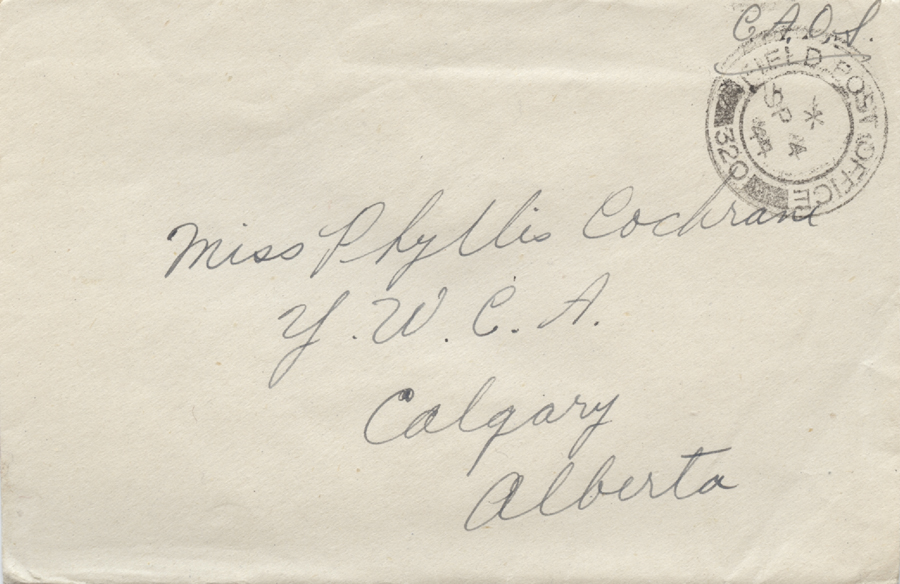 C.A.O.S.
FIELD POST OFFICE
320
SP 4
44
Miss Phyllis Cochrane
Y.W.C.A.
Calgary
Alberta